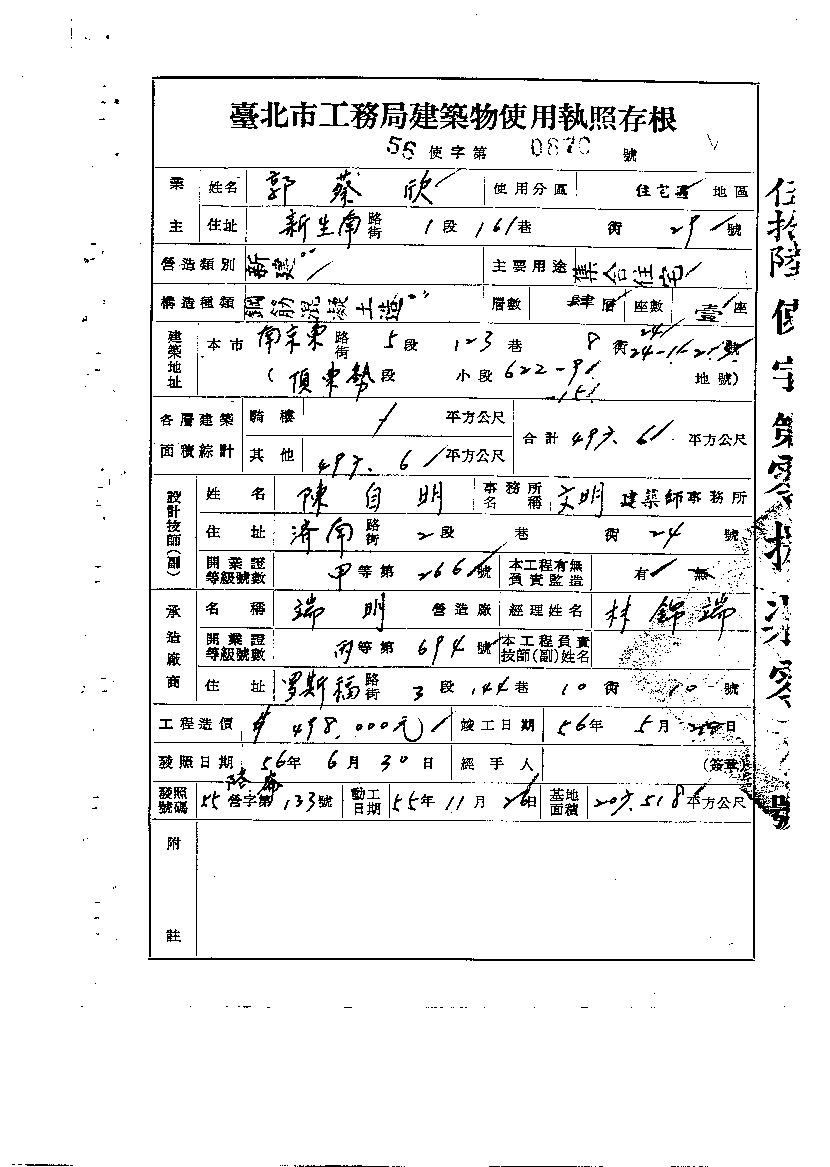 臺北市工務局建築物使用執照存根
56 使字第 0870 號
業主 姓名 郭蔡欣 使用分區 住宅區 地區
住址 新生南 路街 1 段 161 巷 街 29 號
營造類別 新建 主要用途 集合住宅
構造種類 鋼筋混凝土造 層數 肆層 座數 壹座
建築地址 本市 南京東 路街 5 段 123 巷 8 街
(頂東勢 段 小段 622-9 地號)
各層建築面積綜計 騎樓 平方公尺 合計 平方公尺
其他 平方公尺
設計技師(副) 姓名 陳自明 事務所名稱 文明 建築師事務所
住址 濟南 路街 2 段 巷 街 24 號
開業證等級號數 甲等第 266 號 本工程有無負責監造 有 無
承造廠商 名稱 端明 營造廠 經理姓名 林錦端
開業證等級號數 丙等第 694 號 本工程負責技師(副)姓名
住址 羅斯福 路街 3 段 144 巷 10 街 10 號
工程造價 498,000元 竣工日期 56年 5月 日
發照日期 56年 6月 30日 經手人 (簽章)
發照號碼 55 營字第 133 號 動工日期 55年 11月 日 基地面積 平方公尺
附註
伍拾陸使字第零捌柒零號